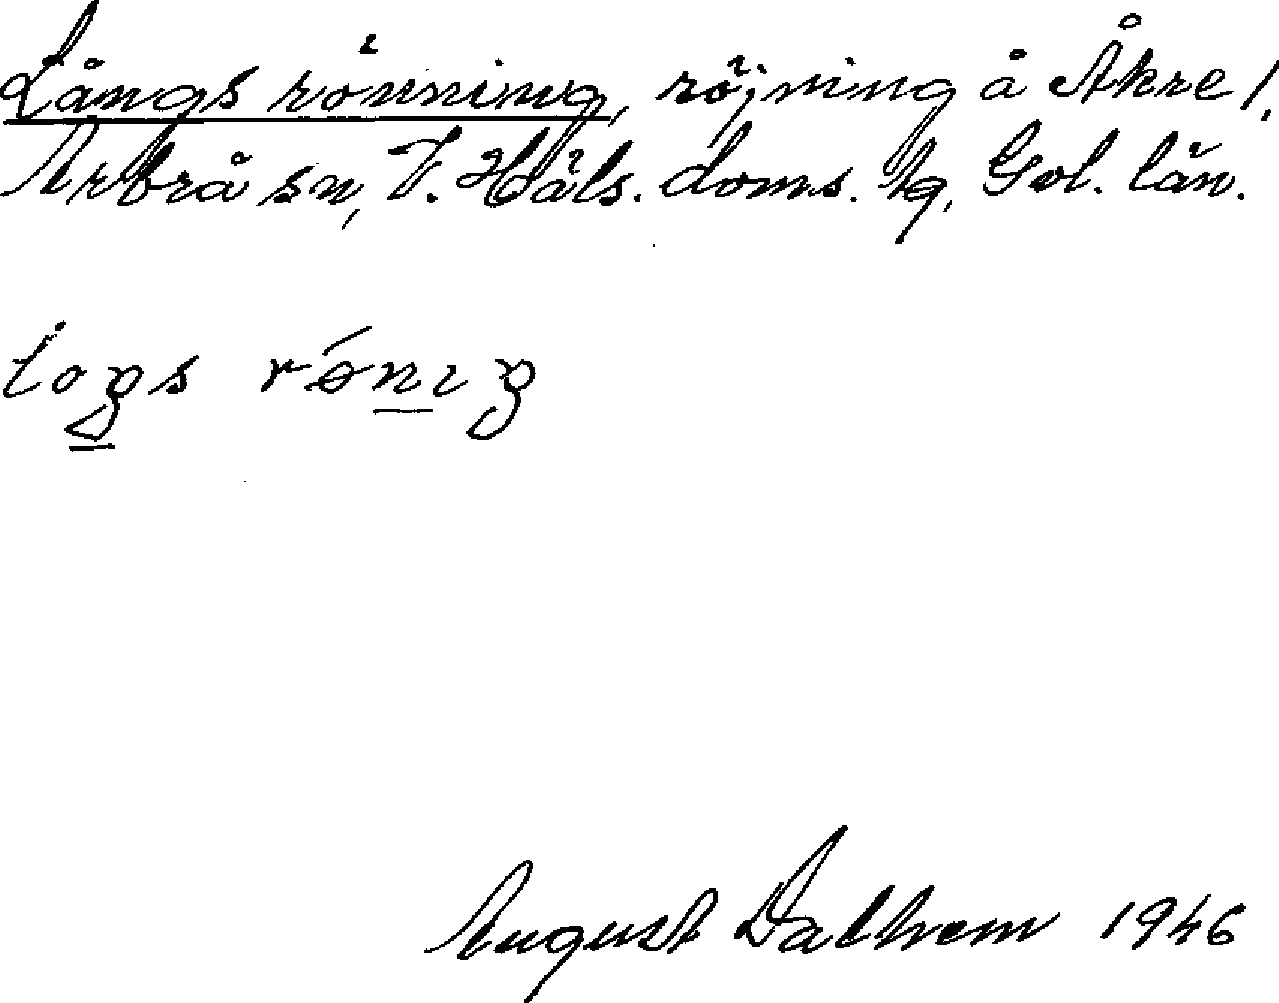 Långs rönning, röjning å Åkre 1,
Arbrå sn, V. Häls. doms. hg, Gvl. län.
loŋs rǿnıŋ
August Dalhem 1946